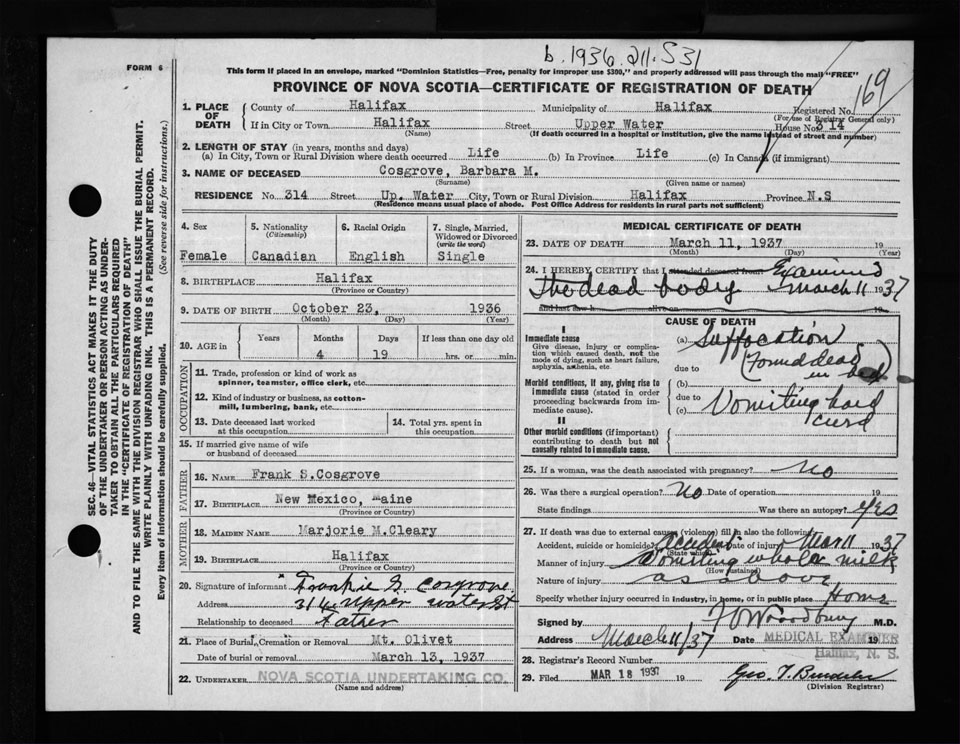 b. 1936. 211. 531
169
FORM 6
This form if placed in an envelope, marked "Dominion Statistics—Free, penalty for improper use $300," and properly addressed will pass through the mail "FREE"
PROVINCE OF NOVA SCOTIA—CERTIFICATE OF REGISTRATION OF DEATH
SEC. 46—VITAL STATISTICS ACT MAKES IT THE DUTY
OF THE UNDERTAKER OR PERSON ACTING AS UNDER-
TAKER TO OBTAIN ALL THE PARTICULARS REQUIRED
IN THE "CERTIFICATE OF REGISTRATION OF DEATH"
AND TO FILE THE SAME WITH THE DIVISION REGISTRAR WHO SHALL ISSUE THE BURIAL PERMIT.
WRITE PLAINLY WITH UNFADING INK. THIS IS A PERMANENT RECORD.
Every item of information should be carefully supplied. (See reverse side for instructions.)
1. PLACE OF DEATH County of Halifax Municipality of Halifax Registered No.
(For use of Registrar General only)
If in City or Town Halifax Street Upper Water House No. 314
(Name) (If death occurred in a hospital or institution, give the name instead of street and number)
2. LENGTH OF STAY (in years, months and days)
(a) In City, Town or Rural Division where death occurred Life (b) In Province Life (c) In Canada (if immigrant)
3. NAME OF DECEASED Cosgrove, Barbara M.
(Surname) (Given name or names)
RESIDENCE No. 314 Street Up. Water City, Town or Rural Division Halifax Province N.S
(Residence means usual place of abode. Post Office Address for residents in rural parts not sufficient)
4. Sex 5. Nationality (Citizenship) 6. Racial Origin 7. Single, Married, Widowed or Divorced (write the word)
Female Canadian English Single
8. BIRTHPLACE Halifax
(Province or Country)
9. DATE OF BIRTH October 23, 1936
(Month) (Day) (Year)
10. AGE in Years Months Days If less than one day old
4 19 hrs. or min.
OCCUPATION
11. Trade, profession or kind of work as
spinner, teamster, office clerk, etc.
12. Kind of industry or business, as cotton-
mill, lumbering, bank, etc.
13. Date deceased last worked
at this occupation
14. Total yrs. spent in
this occupation
15. If married give name of wife
or husband of deceased
FATHER
16. NAME Frank S.Cosgrove
17. BIRTHPLACE New Mexico, Maine
(Province or Country)
MOTHER
18. MAIDEN NAME Marjorie M.Cleary
19. BIRTHPLACE Halifax
(Province or Country)
20. Signature of informant Frankie S Cosgrove
Address 314 Upper water St
Relationship to deceased Father
21. Place of Burial, Cremation or Removal Mt. Olivet
Date of burial or removal March 13, 1937
22. UNDERTAKER NOVA SCOTIA UNDERTAKING CO.
(Name and address)
MEDICAL CERTIFICATE OF DEATH
23. DATE OF DEATH March 11, 1937 19
(Month) (Day) (Year)
24. I HEREBY CERTIFY that I attended deceased from Examined
The dead body March 11 1937
and last saw h alive on 19
CAUSE OF DEATH
I
Immediate cause
Give disease, injury or complica-
tion which caused death, not the
mode of dying, such as heart failure,
asphyxia, asthenia, etc.
(a) Suffocation
due to (Found dead
in bed)
Morbid conditions, if any, giving rise to
immediate cause (stated in order
proceeding backwards from im-
mediate cause).
(b)
due to
(c) Vomiting hard
curd
II
Other morbid conditions (if important)
contributing to death but not
causally related to immediate cause.
25. If a woman, was the death associated with pregnancy? No
26. Was there a surgical operation? No Date of operation 19
State findings Was there an autopsy? Yes
27. If death was due to external causes (violence) fill in also the following:
Accident, suicide or homicide? Accident Date of injury Mar 11 1937
(State which)
Manner of injury Vomiting whole milk
(How sustained)
Nature of injury as above
Specify whether injury occurred in industry, in home, or in public place Home
Signed by F O Woodbury M.D.
Address March 11/37 Date MEDICAL EXAMINER 19
Halifax, N. S.
28. Registrar's Record Number
29. Filed MAR 18 1937 19
(Division Registrar)